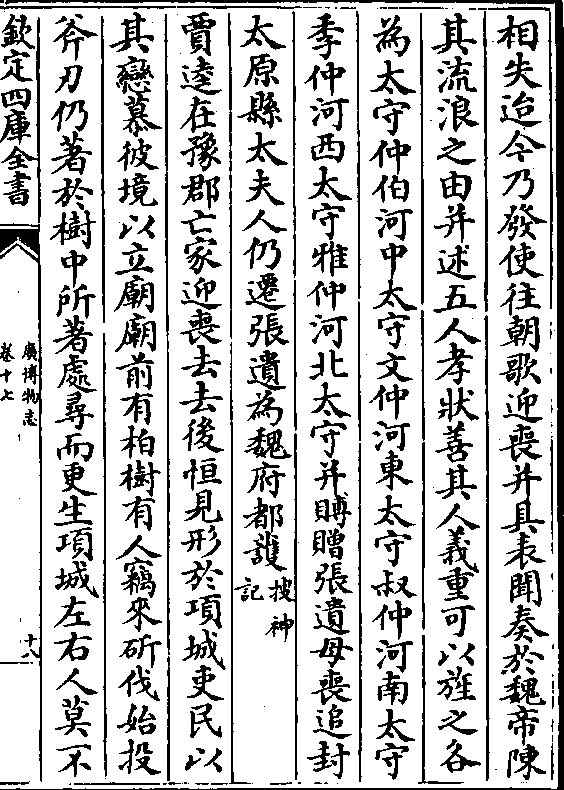 相失迨今乃發使往朝歌迎喪并具表聞奏於魏帝陳
其流浪之由并述五人孝狀善其人義重可以旌之各
為太守仲伯河中太守文仲河東太守叔仲河南太守
季仲河西太守雅仲河北太守并賻贈張遺母喪追封
太原縣太夫人仍遷張遺為魏府都護搜神記
賈逵在豫郡亡家迎喪去去後恒見形於項城吏民以
其戀慕彼境以立廟廟前有柏樹有人竊來斫伐始投
斧刃仍著於樹中所著處尋而更生項城左右人莫不
欽定四庫全書
廣博物志
卷十七
十八